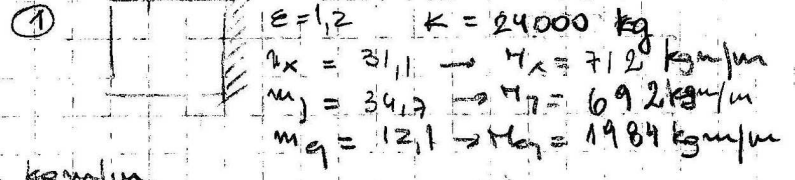 ① ε=1,2 K = 24000 kg
mx = 31,1 → Mx = 712 kgm/m
my = 34,7 → My = 692 kgm/m
= 12,1 → = 1984 kgm/m
kgm/m